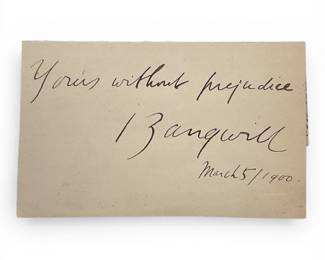 Yours without prejudice
I Zangwill
March 5/1900.